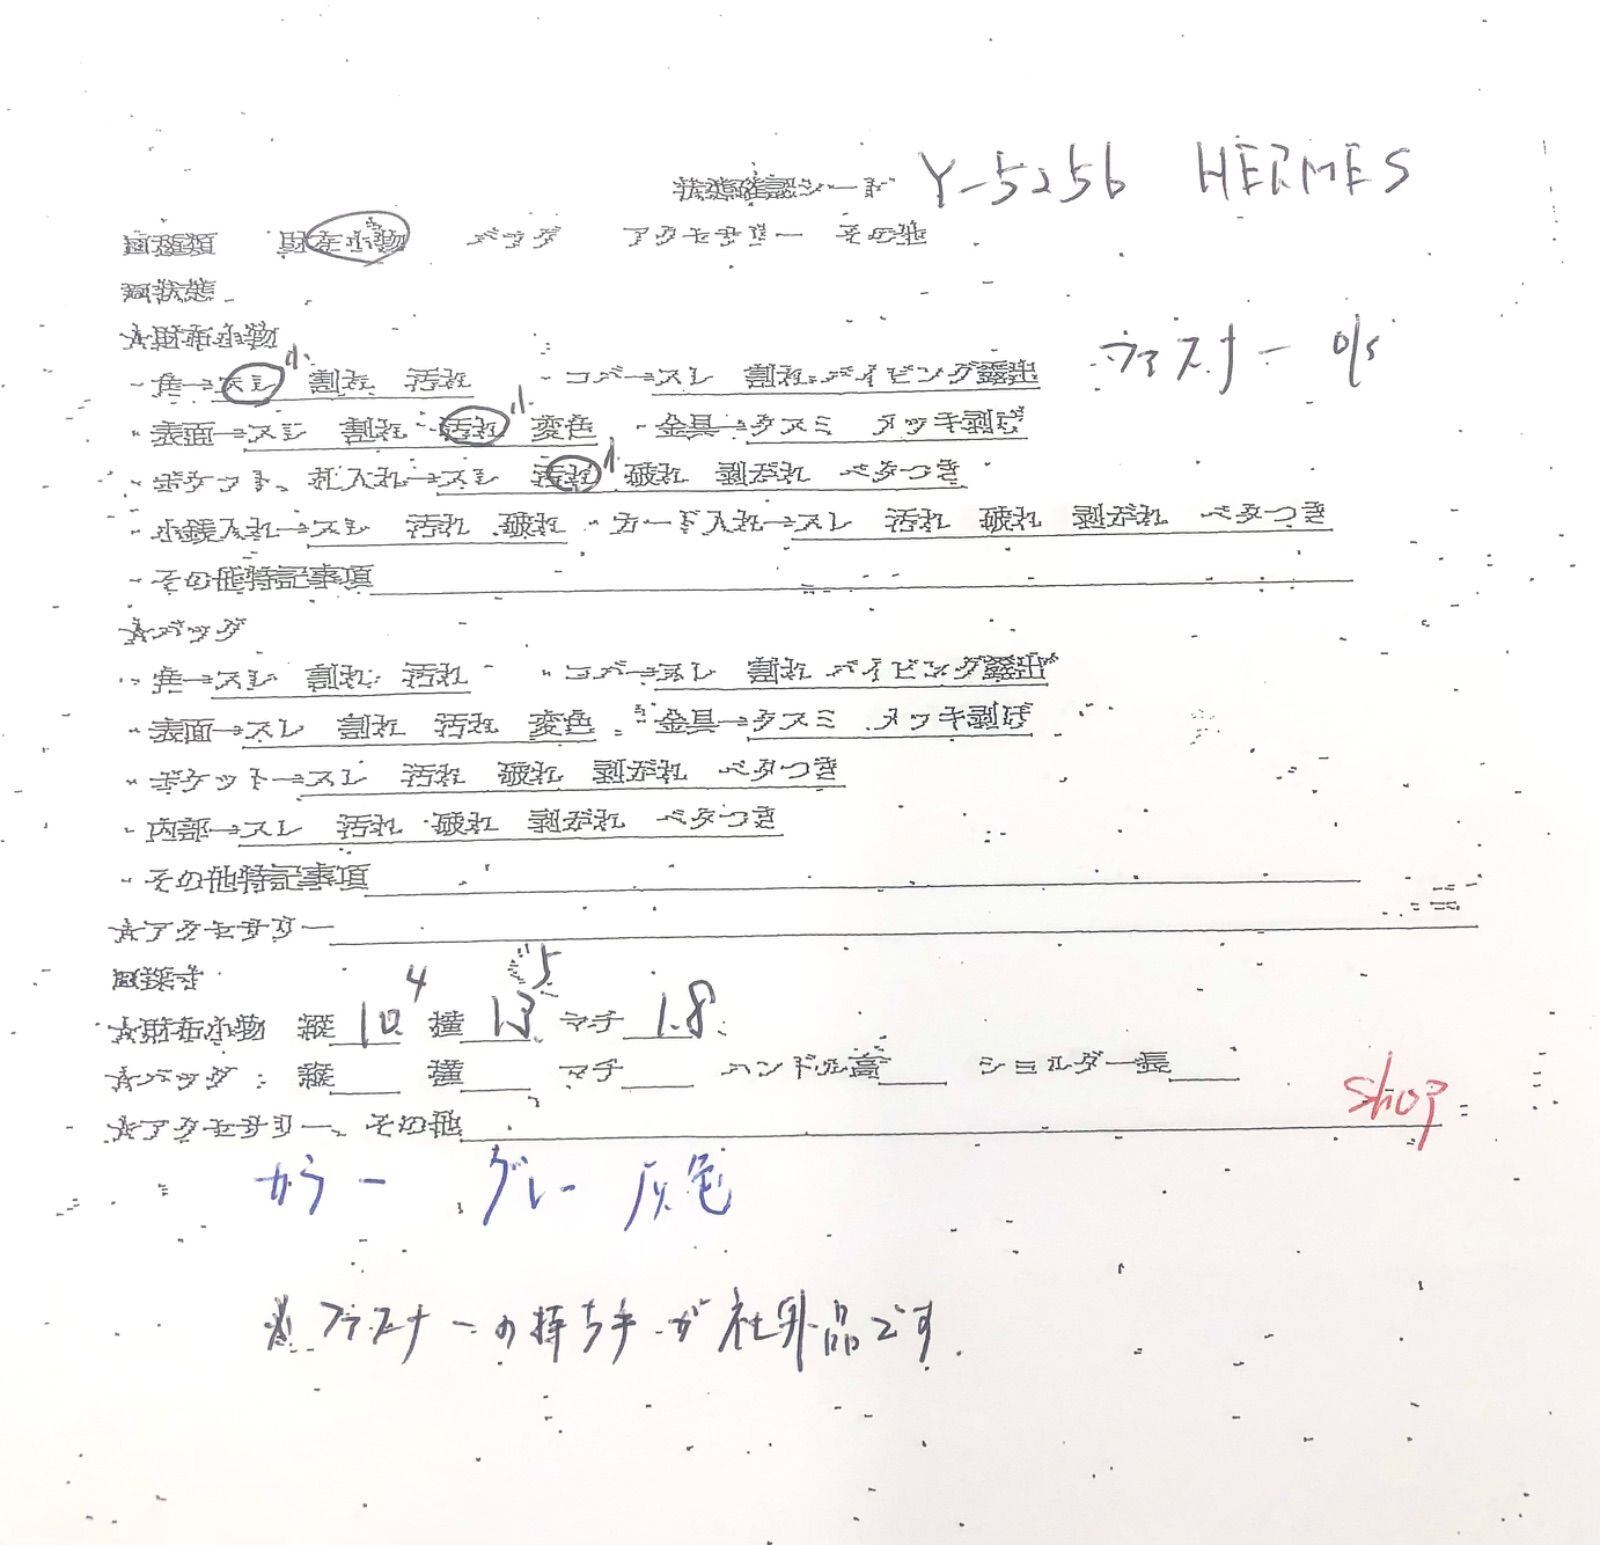 状態確認シート Y-5256 HERMES
■種類 財布小物 バッグ アクセサリー その他
■状態
☆財布小物
ファスナー O/S
・角→スレ小 割れ 汚れ ・コバ→スレ 割れ パイピング露出
・表面→スレ 割れ 汚れ小 変色 ・金具→クスミ メッキ剥げ
・ポケット、札入れ→スレ 汚れ小 破れ 剥がれ ベタつき
・小銭入れ→スレ 汚れ 破れ ・カード入れ→スレ 汚れ 破れ 剥がれ ベタつき
・その他特記事項
☆バッグ
・角→スレ 割れ 汚れ ・コバ→スレ 割れ パイピング露出
・表面→スレ 割れ 汚れ 変色 ・金具→クスミ メッキ剥げ
・ポケット→スレ 汚れ 破れ 剥がれ ベタつき
・内部→スレ 汚れ 破れ 剥がれ ベタつき
・その他特記事項
☆アクセサリー
■採寸
☆財布小物 縦 10.4 横 13.5 マチ 1.8
☆バッグ 縦 横 マチ ハンドル高 ショルダー長
shop
☆アクセサリー、その他
カラー グレー 灰色
※ファスナーの持ち手が社外品です.